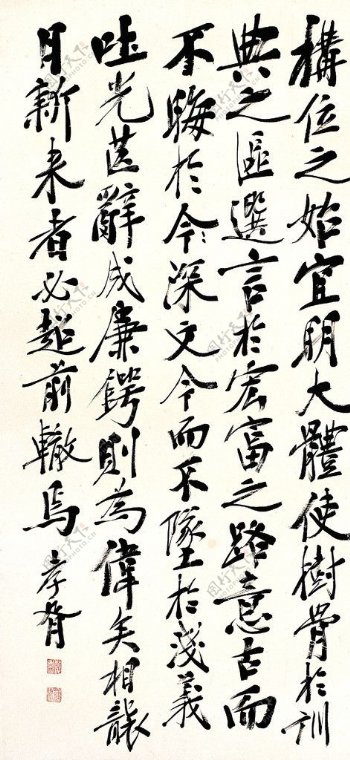 構位之始宜明大體使樹骨於訓
典之區選言於宏富之路意古而
不晦於今深文今而不墜於淺義
吐光芒辭成廉鍔則為偉矣相襲
日新来者必超前轍焉 孝胥